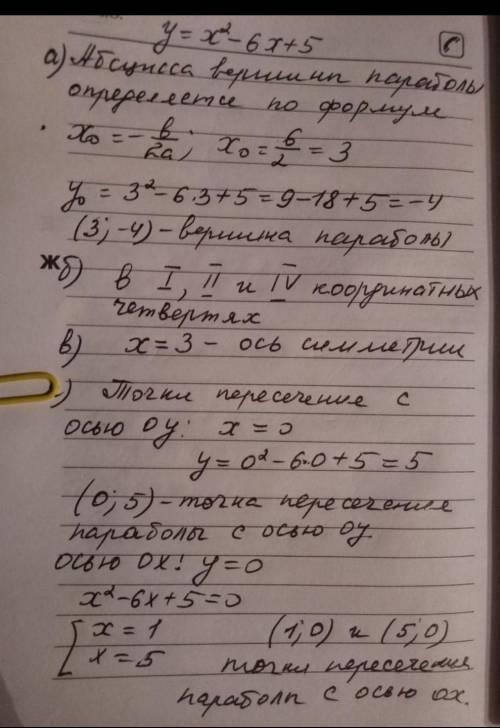 y = x² - 6x + 5
а) Абсцисса вершины параболы
определяется по формуле
x₀ = - b/2a; x₀ = 6/2 = 3
y₀ = 3² - 6·3 + 5 = 9 - 18 + 5 = -4
(3; -4) - вершина параболы
жб) в I, II и IV координатных
четвертях
в) x = 3 - ось симметрии
) Точки пересечение с
осью OY: x = 0
y = 0² - 6·0 + 5 = 5
(0; 5) - точка пересечение
параболы с осью OY.
осью OX: y = 0
x² - 6x + 5 = 0
[ x = 1 (1; 0) и (5; 0)
x = 5 точки пересечения
параболы с осью OX.